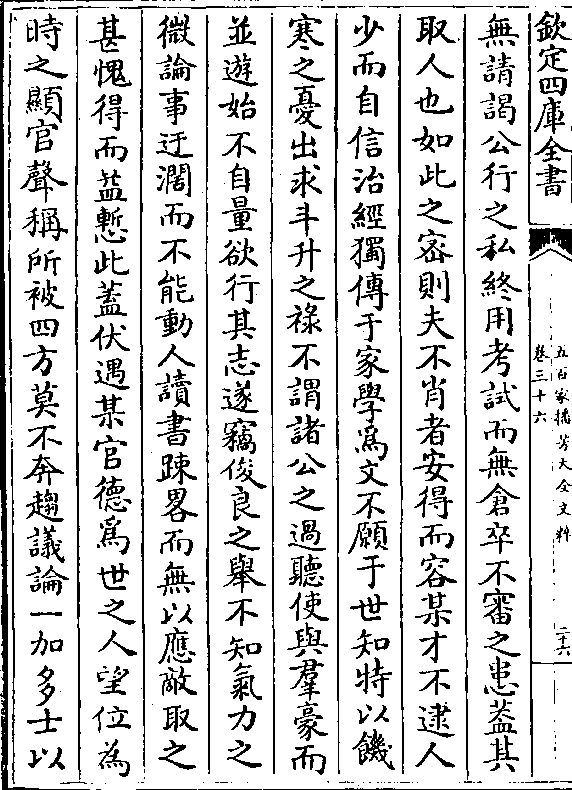 欽定四庫全書
五百家播芳大全文粹
卷三十六
二十六
無請謁公行之私終用考試而無倉卒不審之患葢其
取人也如此之宻則夫不肖者安得而容某才不逮人
少而自信治經獨傳于家學為文不願于世知特以饑
寒之憂出求斗升之祿不謂諸公之過聽使與羣豪而
並遊始不自量欲行其志遂竊俊良之舉不知氣力之
微論事迂濶而不能動人讀書踈畧而無以應敵取之
甚愧得而葢慙此蓋伏遇某官德為世之人望位為
時之顯官聲稱所被四方莫不奔趨議論一加多士以